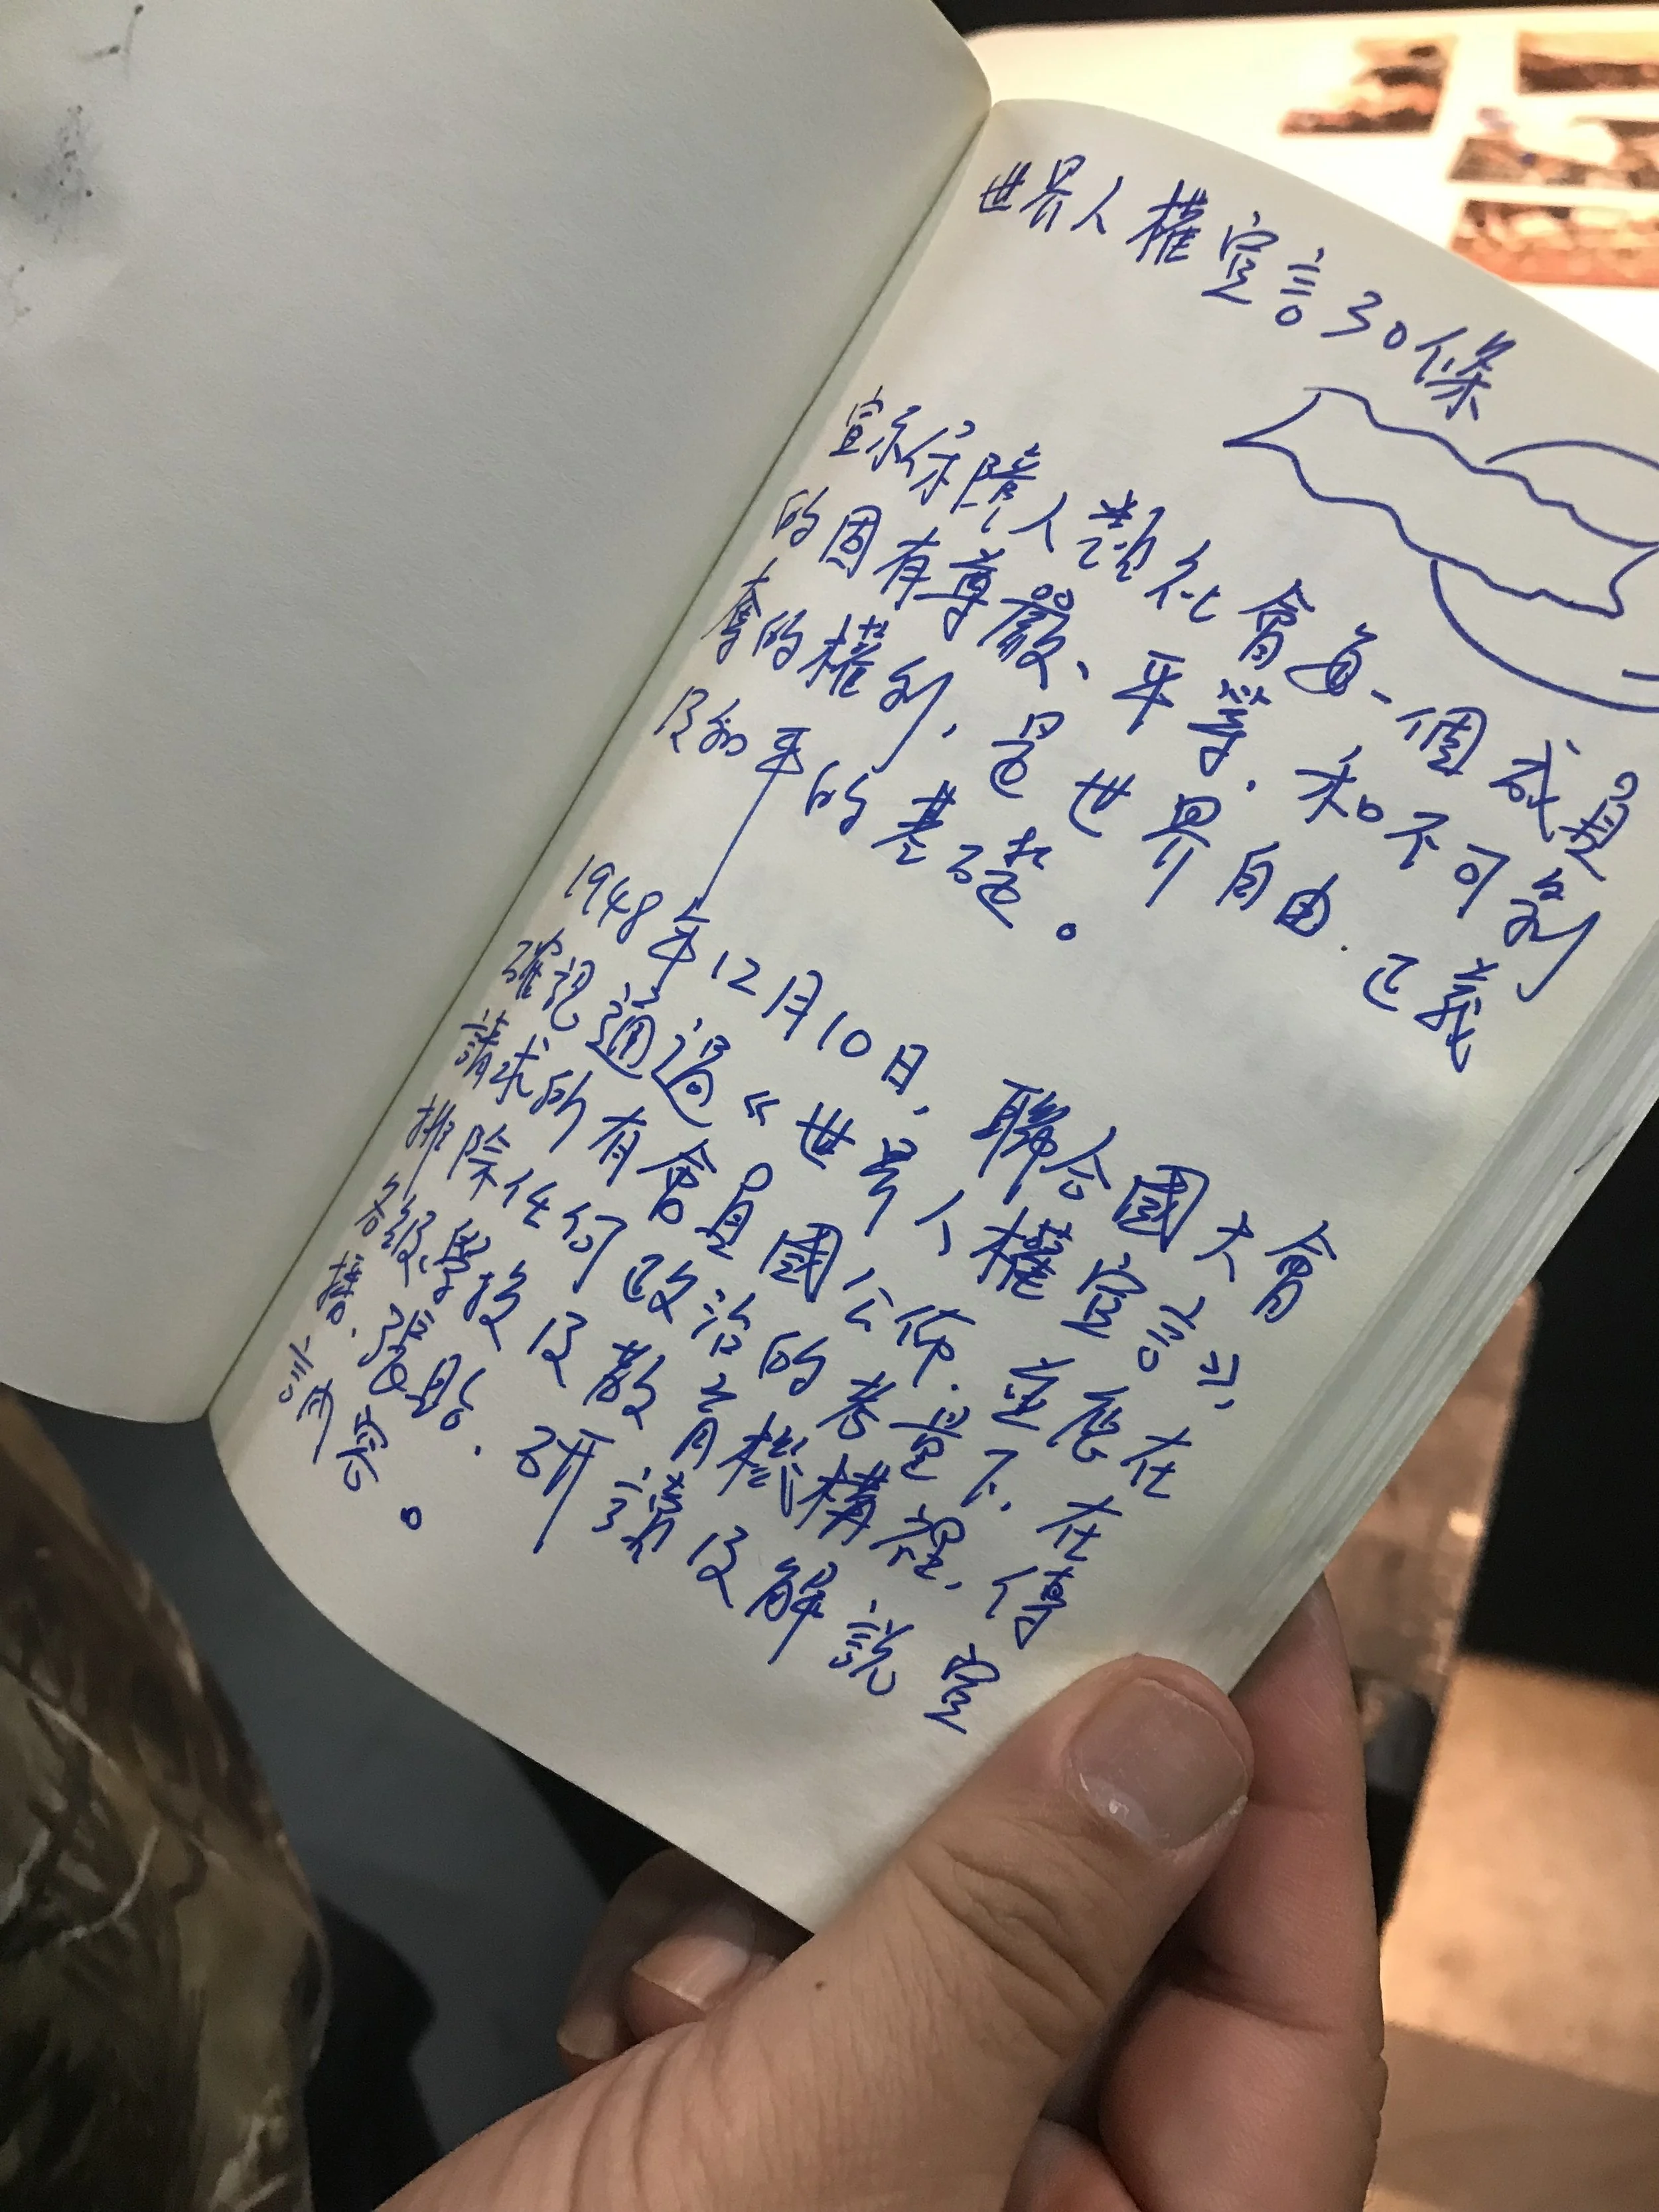 世界人權宣言30條
宣示保障人類社會每一個成員
的固有尊嚴、平等、和不可剝
奪的權利，是世界自由、正義
及和平的基礎。
1948年12月10日，聯合國大會
確認通過《世界人權宣言》，
請求所有會員國公佈，並應在
排除任何政治的考量下，在
各級學校及教育機構裡，傳
播、張貼、研議及解說宣
言內容。